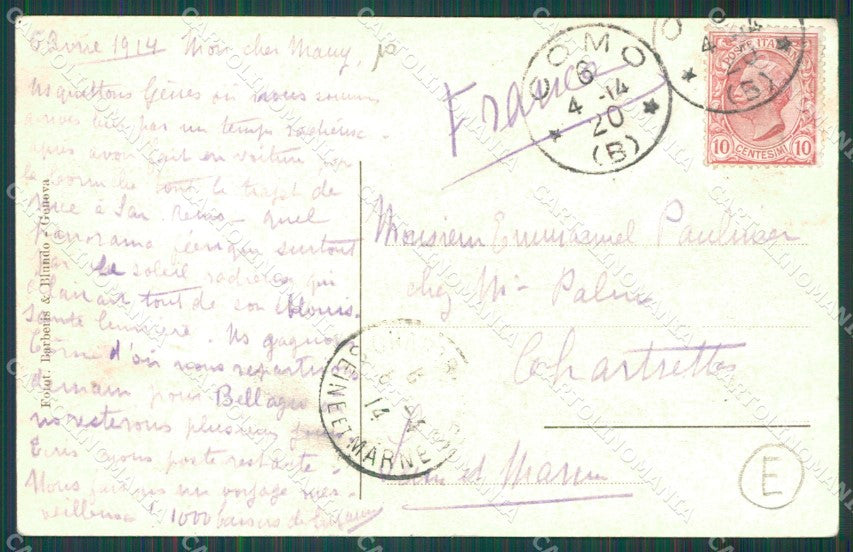 6 Avril 1914 Mon cher Many,
Ns quittons Gênes où nous sommes
arrivés hier par un temps radieux.
Après avoir fait en voiture par
la Corniche tout le trajet de
Nice à San Remo - quel
Panorama féerique surtout
par le soleil radieux qui
l'éclairait tout de son éblouis-
sante lumière. Ns gagnons
Côme d'où nous repartirons
demain pour Bellagio
ns resterons plusieurs jours
poste restante
Nous un voyage mer-
veilleux 1000 baisers de
Fotot. Barberis & Blando - Genova
France
COMO
6
4 - 14
20
(B)
POSTE ITALIANE
10 CENTESIMI 10
Monsieur Emmanuel
chez Mr Palin
Chartrettes
Seine et Marne
SEINE ET MARNE
14
E
CARTOLINOMANIA